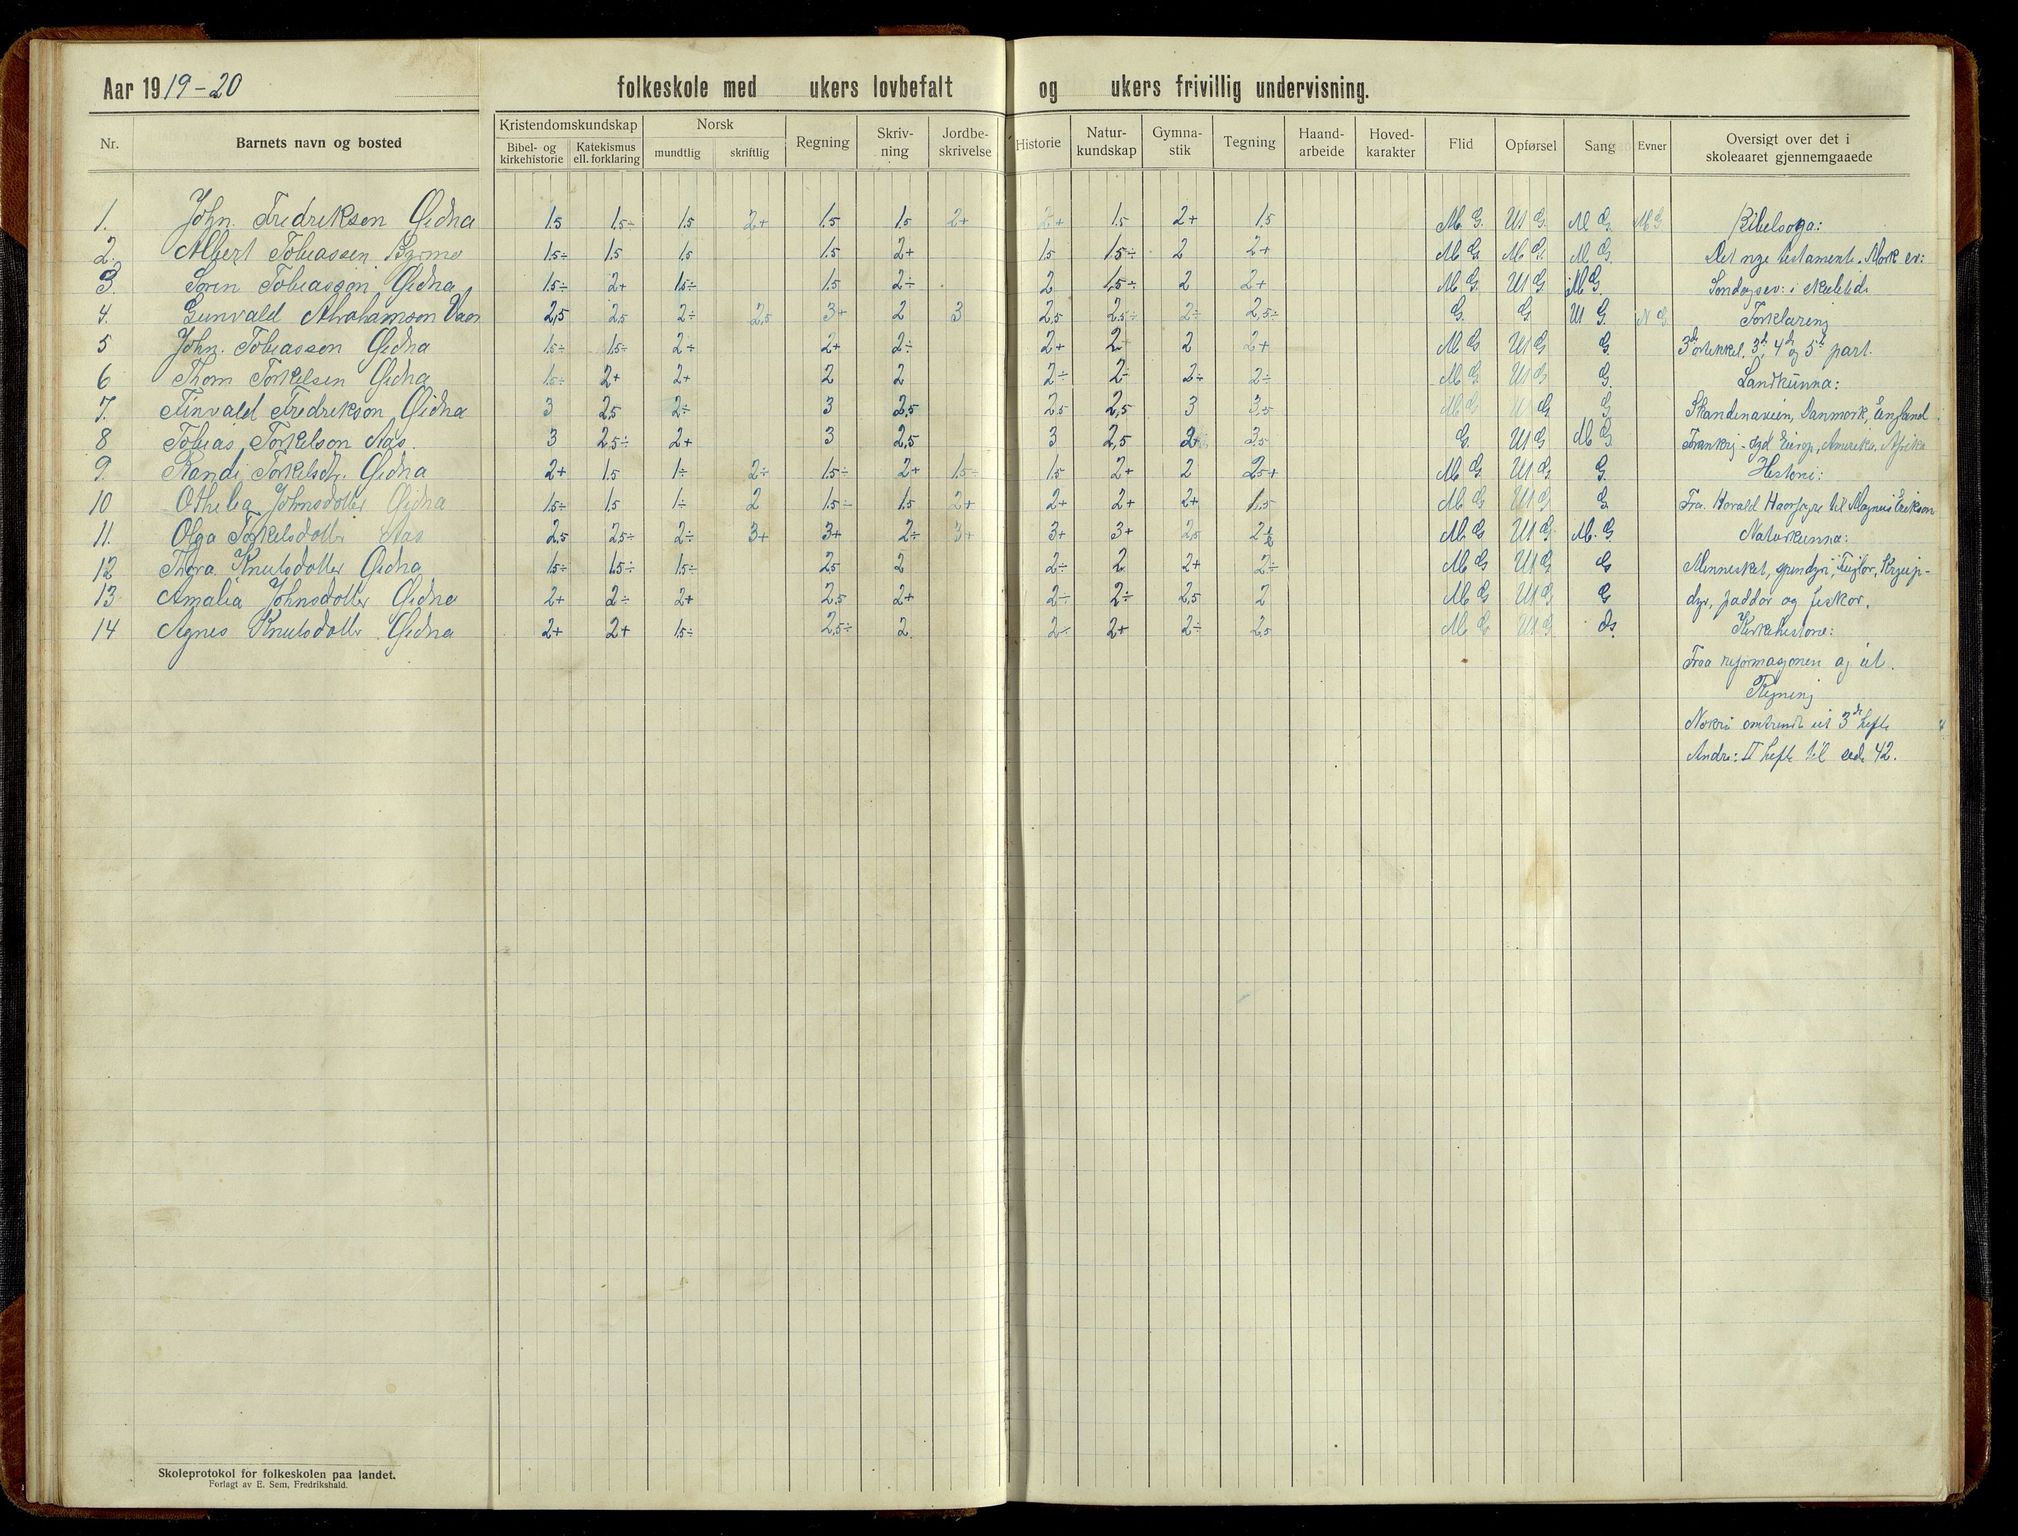 Aar 1919-20 folkeskole med ukers lovbefalt og ukers frivillig undervisning.
Nr. Barnets navn og bosted Kristendomskundskap Norsk Regning Skriv-ning Jordbe-skrivelse Historie Natur-kundskap Gymna-stik Tegning Haand-arbeide Hoved-karakter Flid Opførsel Sang Evner Oversigt over det i skoleaaret gjennemgaaede
Bibel- og kirkehistorie Katekismus ell. forklaring mundtlig skriftlig
1. John. Fredrikson Øidna 1.5 1.5÷ 1.5 2+ 1.5 1.5 2+ 2+ 1.5 2+ 1.5 M G. Ut G. M G. M G Bibelsoga:
2. Albert Tobiassen 1.5÷ 1.5 1.5 1.5 2+ 1.5 1.5÷ 2 2+ M G. M G. M G. Det nye testamente. Mark ev:
3. Søren Tobiasson Øidna 1.5÷ 2+ 1.5÷ 1.5 2÷ 2 1.5÷ 2 2+ M G. Ut G M G. Søndagsev: i skuletidi
4. Gunvald Abrahamson 2,5 2,5 2÷ 2,5 3+ 2 3 2,5 2,5÷ 2÷ 2,5÷ G. G. Ut G. G. Forklaring
5 John. Tobiasson Øidna 1.5÷ 1.5÷ 2+ 2+ 2÷ 2+ 2 2 2+ M G Ut G G. 3d artikkel. 3d, 4d og 5t part.
6 Thom Torkelsen Øidna 1.5÷ 2+ 2+ 2 2 2÷ 2÷ 2÷ 2÷ M G Ut G G. Landkunna:
7. Finvald Fredrikson Øidna 3 2,5 2÷ 3 2,5 2,5 2,5 3 3,5 M G Ut G G Skandinavien, Danmork, England
8 Tobias, Torkelson Aas. 3 2,5÷ 2+ 3 2,5 3 2,5 2+ 3,5 G. Ut G M G Amerika, Afrika
9. Randi Torkelsdtr. Øidna 2+ 1.5 1÷ 2÷ 1.5÷ 2+ 1.5÷ 1.5 2+ 2 2,5+ M G Ut G G. Historie:
10 Othelia Johnsdotter Øidna 1.5÷ 1.5 1÷ 2 1.5÷ 1.5 2+ 2+ 2+ 2+ 1.5 M G Ut G G Fra Harald Haarfagre til Magnus Erikson
11. Olga Torkelsdotter Aas 2,5 2,5÷ 2÷ 3+ 3+ 2÷ 3+ 3+ 3+ 2,5 2½ M G Ut G M. G Naturkunna:
12 Thora Knutsdotter Øidna 1.5÷ 1.5÷ 1.5÷ 2,5 2 2÷ 2 2+ 2÷ M G Ut G G Mennesket, spendyr, Fuglar, Krjup-
13 Amalia Johnsdotter Øidna 2+ 2÷ 2+ 2,5 2+ 2÷ 2÷ 2,5 2 M G Ut G G dyr, paddor og fiskar.
14 Agnes Knutsdotter Øidna 2+ 2+ 1.5÷ 2,5÷ 2 2÷ 2+ 2÷ 2,5 M G Ut G G. Kirkehistorie:
Fraa reformasjonen og ut.
Regning
Nokre omtrendt ut 3de hefte
Andre: II hefte til side 42.
Skoleprotokol for folkeskolen paa landet.
Forlagt av E. Sem, Fredrikshald.